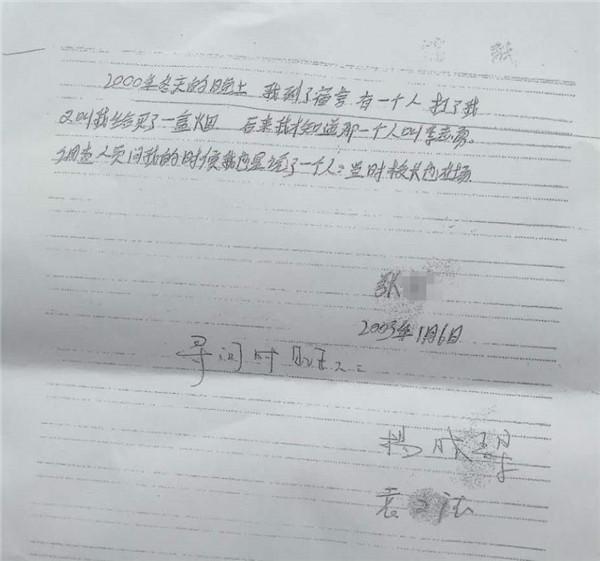 2000年冬天的晚上 我到了宿舍 有一个人 打了我
又叫我给买了一盒烟 后来我才知道那一个人叫李志勇。
调查人员问我的时候我也是说了一个人:当时校长也在场
张
2003年1月6日
寻问时
杨成
袁 法